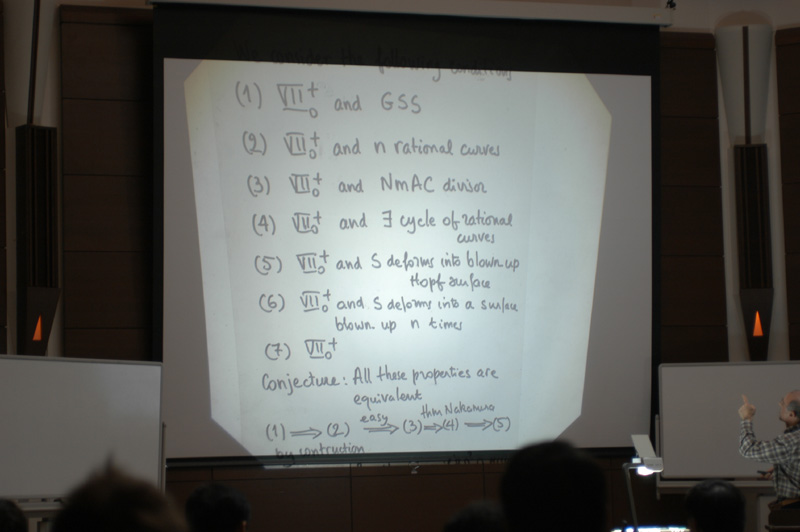 the following conditions
(1) VII₀⁺ and GSS
(2) VII₀⁺ and n rational curves
(3) VII₀⁺ and NmAC divisor
(4) VII₀⁺ and ∃ cycle of rational
curves
(5) VII₀⁺ and S deforms into blown up
Hopf surface
(6) VII₀⁺ and S deforms into a surface
blown up n times
(7) VII₀⁺
Conjecture: All these properties are
equivalent
easy thm Nakamura
(1) ⟹ (2) ⟹ (3) ⟹ (4) ⟹ (5)
by contruction